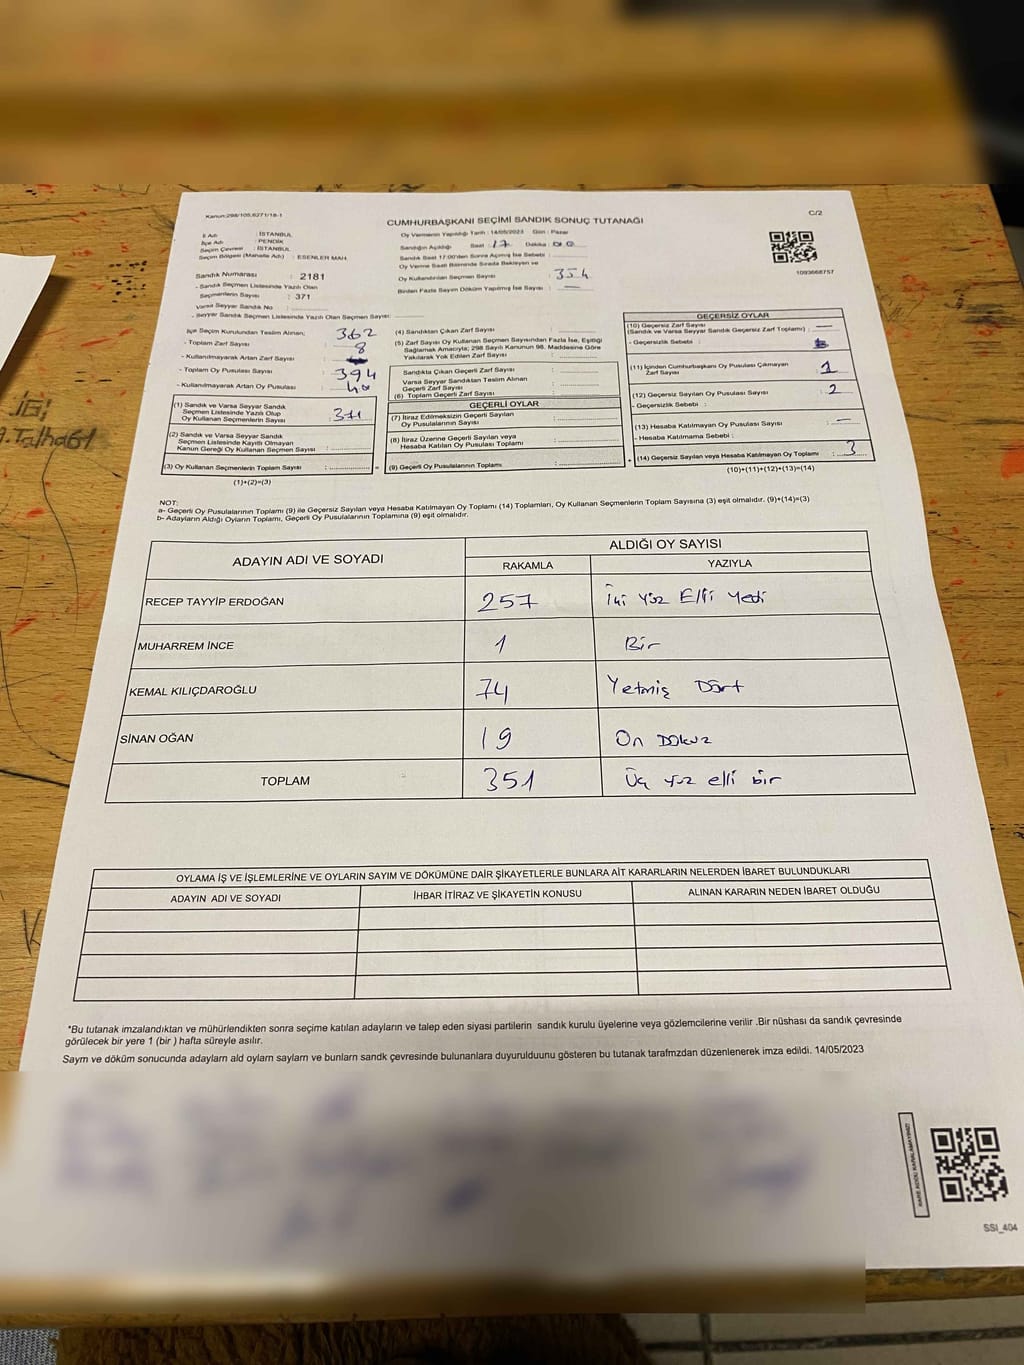 Kanun:298/105,6271/18-1
C/2
CUMHURBAŞKANI SEÇİMİ SANDIK SONUÇ TUTANAĞI
İl Adı : İSTANBUL
İlçe Adı : PENDİK
Seçim Çevresi : İSTANBUL
Seçim Bölgesi (Mahalle Adı) : ESENLER MAH.
Sandık Numarası : 2181
- Sandık Seçmen Listesinde Yazılı Olan
Seçmenlerin Sayısı : 371
Varsa Seyyar Sandık No :
- Seyyar Sandık Seçmen Listesinde Yazılı Olan Seçmen Sayısı:
Oy Vermenin Yapıldığı Tarih : 14/05/2023 Gün : Pazar
Sandığın Açıldığı Saat : 17 Dakika : 00
Sandık Saat 17:00'den Sonra Açılmış İse Sebebi :
Oy Verme Saati Bitiminde Sırada Bekleyen ve
Oy Kullandırılan Seçmen Sayısı 354
Birden Fazla Sayım Döküm Yapılmış İse Sayısı : —
1093668757
İlçe Seçim Kurulundan Teslim Alınan;
- Toplam Zarf Sayısı : 362
- Kullanılmayarak Artan Zarf Sayısı : 8
- Toplam Oy Pusulası Sayısı : 394
- Kullanılmayarak Artan Oy Pusulası : 40
(1) Sandık ve Varsa Seyyar Sandık
Seçmen Listesinde Yazılı Olup
Oy Kullanan Seçmenlerin Sayısı :
(2) Sandık ve Varsa Seyyar Sandık
Seçmen Listesinde Kayıtlı Olmayan
Kanun Gereği Oy Kullanan Seçmen Sayısı :
(3) Oy Kullanan Seçmenlerin Toplam Sayısı :
(1)+(2)=(3)
(4) Sandıktan Çıkan Zarf Sayısı :
(5) Zarf Sayısı Oy Kullanan Seçmen Sayısından Fazla İse, Eşitliği
Sağlamak Amacıyla; 298 Sayılı Kanunun 98. Maddesine Göre
Yakılarak Yok Edilen Zarf Sayısı :
Sandıkta Çıkan Geçerli Zarf Sayısı :
Varsa Seyyar Sandıktan Teslim Alınan
Geçerli Zarf Sayısı :
(6) Toplam Geçerli Zarf Sayısı :
GEÇERLİ OYLAR
(7) İtiraz Edilmeksizin Geçerli Sayılan
Oy Pusulalarının Sayısı :
(8) İtiraz Üzerine Geçerli Sayılan veya
Hesaba Katılan Oy Pusulası Toplamı :
(9) Geçerli Oy Pusulalarının Toplamı :
GEÇERSİZ OYLAR
(10) Geçersiz Zarf Sayısı
(Sandık ve Varsa Seyyar Sandık Geçersiz Zarf Toplamı) : —
- Geçersizlik Sebebi :
(11) İçinden Cumhurbaşkanı Oy Pusulası Çıkmayan
Zarf Sayısı : 1
(12) Geçersiz Sayılan Oy Pusulası Sayısı : 2
- Geçersizlik Sebebi :
(13) Hesaba Katılmayan Oy Pusulası Sayısı : —
- Hesaba Katılmama Sebebi :
(14) Geçersiz Sayılan veya Hesaba Katılmayan Oy Toplamı : 3
(10)+(11)+(12)+(13)=(14)
NOT:
a- Geçerli Oy Pusulalarının Toplamı (9) ile Geçersiz Sayılan veya Hesaba Katılmayan Oy Toplamı (14) Toplamları, Oy Kullanan Seçmenlerin Toplam Sayısına (3) eşit olmalıdır. (9)+(14)=(3)
b- Adayların Aldığı Oyların Toplamı, Geçerli Oy Pusulalarının Toplamına (9) eşit olmalıdır.
ADAYIN ADI VE SOYADI ALDIĞI OY SAYISI
RAKAMLA YAZIYLA
RECEP TAYYİP ERDOĞAN 257 İki Yüz Elli Yedi
MUHARREM İNCE 1 Bir
KEMAL KILIÇDAROĞLU 74 Yetmiş Dört
SİNAN OĞAN 19 On Dokuz
TOPLAM 351 Üç yüz elli bir
OYLAMA İŞ VE İŞLEMLERİNE VE OYLARIN SAYIM VE DÖKÜMÜNE DAİR ŞİKAYETLERLE BUNLARA AİT KARARLARIN NELERDEN İBARET BULUNDUKLARI
ADAYIN ADI VE SOYADI İHBAR İTİRAZ VE ŞİKAYETİN KONUSU ALINAN KARARIN NEDEN İBARET OLDUĞU
*Bu tutanak imzalandıktan ve mühürlendikten sonra seçime katılan adayların ve talep eden siyasi partilerin sandık kurulu üyelerine veya gözlemcilerine verilir .Bir nüshası da sandık çevresinde
görülecek bir yere 1 (bir ) hafta süreyle asılır.
Sayım ve döküm sonucunda adayların ald oyların sayların ve bunların sandk çevresinde bulunanlara duyurulduunu gösteren bu tutanak tarafmzdan düzenlenerek imza edildi. 14/05/2023
KARE KODU KARALAMAYINIZ!
SSI_404